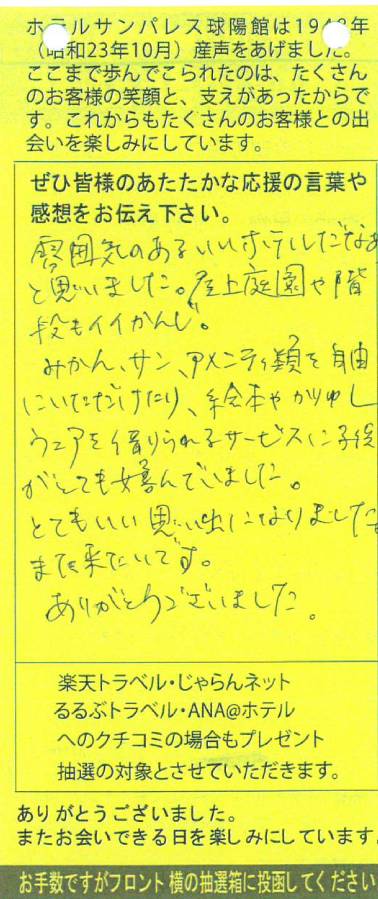 ホテルサンパレス球陽館は1948年
（昭和23年10月）産声をあげました。
ここまで歩んでこられたのは、たくさん
のお客様の笑顔と、支えがあったからで
す。これからもたくさんのお客様との出
会いを楽しみにしています。
ぜひ皆様のあたたかな応援の言葉や
感想をお伝え下さい。
雰囲気のあるいいホテルだなあ
と思いました。屋上庭園や階
段もイイかんじ。
みかん、サン、アメニティ類を自由
にいただけたり、絵本やかりゆし
ウェアを借りられるサービスに子供
がとても喜んでいました。
とてもいい思い出になりました。
また来たいです。
ありがとうございました。
楽天トラベル・じゃらんネット
るるぶトラベル・ANA@ホテル
へのクチコミの場合もプレゼント
抽選の対象とさせていただきます。
ありがとうございました。
またお会いできる日を楽しみにしています。
お手数ですがフロント横の抽選箱に投函してください